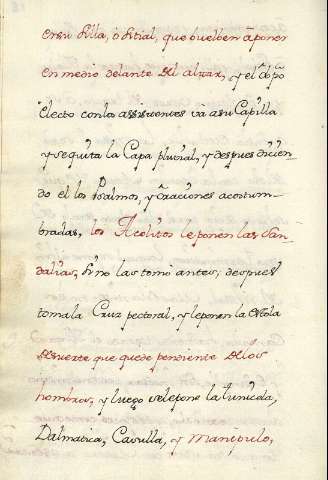 en su Silla, ó Sitial, que buelben á poner
en medio delante del altar, y el Obpo
Electo con los assistentes vá a su Capilla
y se quita la Capa pluvial, y despues dicien-
do el los Psalmos, y Oraciones acostum-
bradas, los Acolitos le ponen las San-
dalias, si no las tomó antes; despues
toma la Cruz pectoral, y le ponen la Estola
de suerte que quede pendiente de los
hombros, y luego se le pone la tunicela,
Dalmatica, Casulla, y Manipulo,